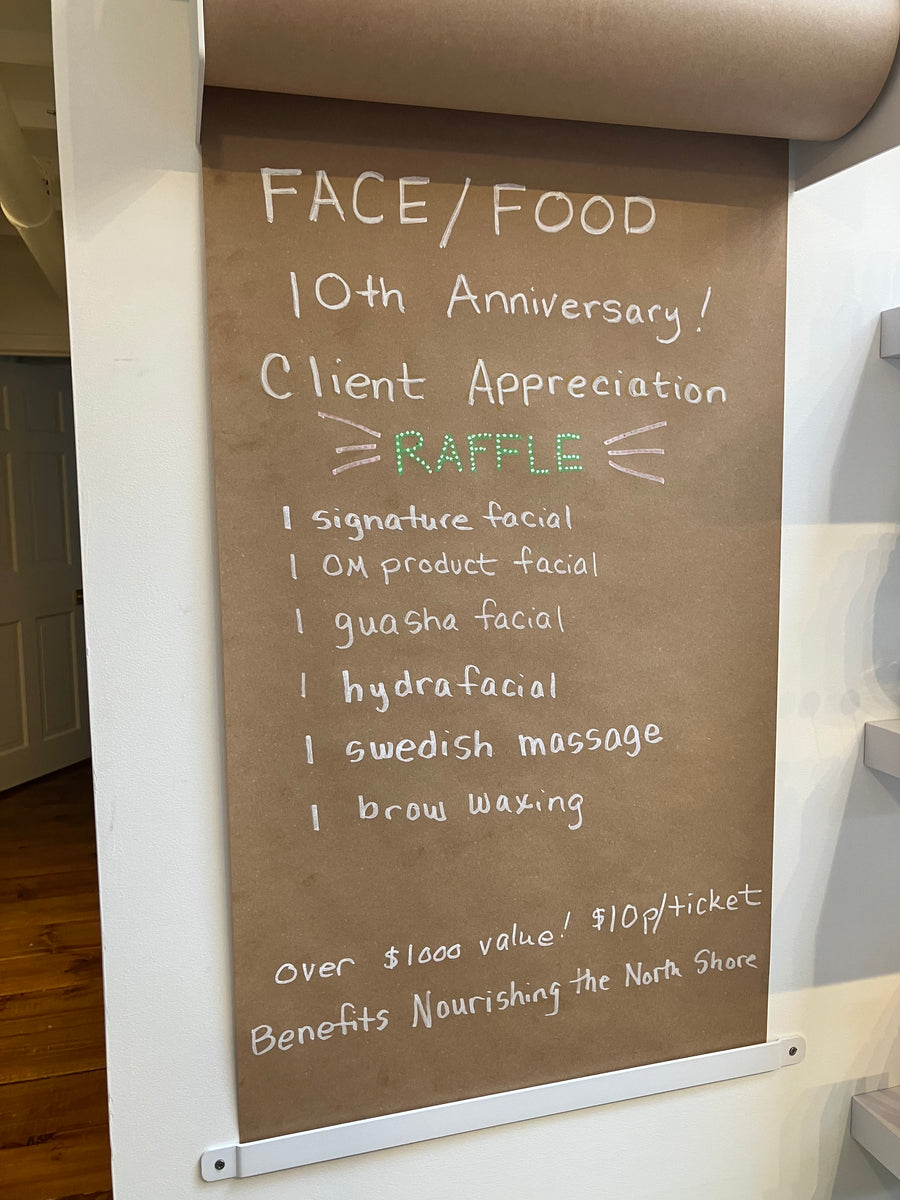 FACE/FOOD
10th Anniversary!
Client Appreciation
RAFFLE
1 signature facial
1 OM product facial
1 guasha facial
1 hydrafacial
1 swedish massage
1 brow waxing
over $1000 value! $10p/ticket
Benefits Nourishing the North Shore